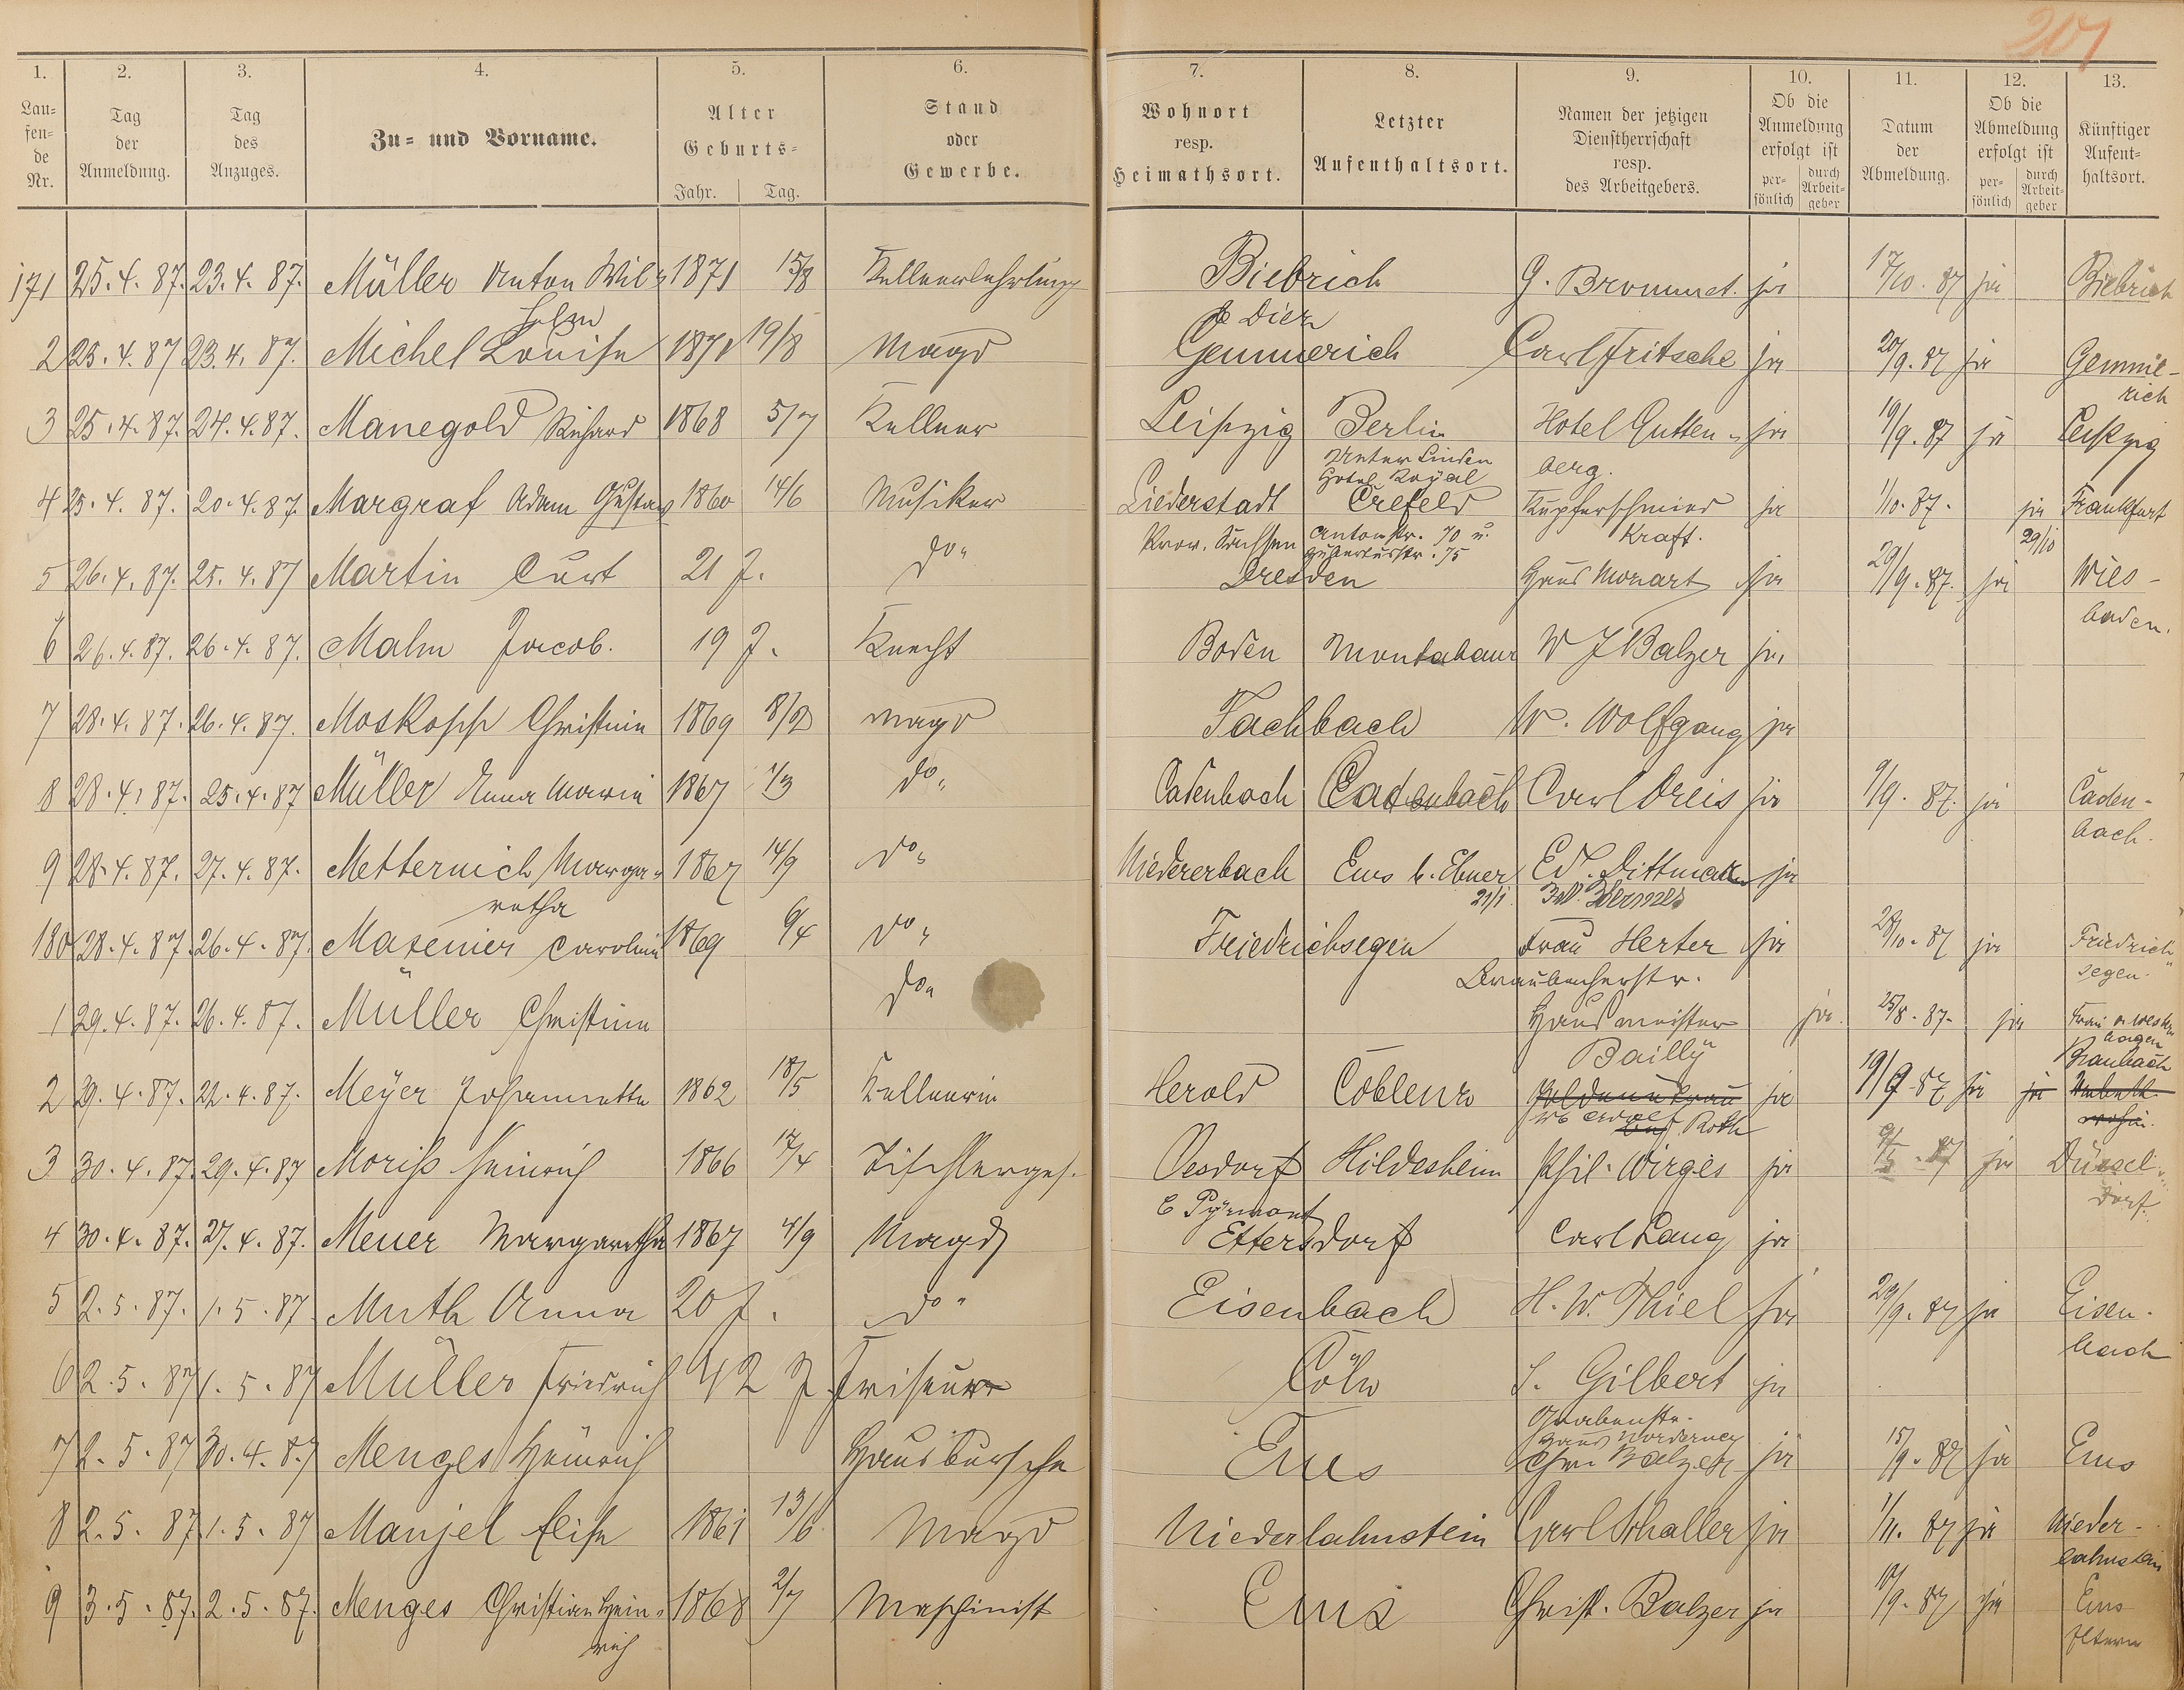 207
1. 2. 3. 4. 5. 6. 7. 8. 9. 10. 11. 12. 13.
Lau-
fen-
de
Nr.
Tag
der
Anmeldung.
Tag
des
Anzuges.
Zu- und Vorname.
Alter
Geburts-
Jahr. Tag.
Stand
oder
Gewerbe.
Wohnort
resp.
Heimathsort.
Letzter
Aufenthaltsort.
Namen der jetzigen
Dienstherrschaft
resp.
des Arbeitgebers.
Ob die
Anmeldung
erfolgt ist
per-
sönlich
durch
Arbeit-
geber
Datum
der
Abmeldung.
Ob die
Abmeldung
erfolgt ist
per-
sönlich
durch
Arbeit-
geber
Künftiger
Aufent-
haltsort.
171 25.4.87. 23.4.87. Müller Anton Wil- 1871 15/8 Kellnerlehrling Biebrich G. Brommet. ja 17/10.87 ja Biebrich
helm
b Diez
2 25.4.87 23.4.87. Michel Louise 1871 19/8 Magd Gemmerich Carl Fritsche ja 20/9.87 ja Gemme-
rich
3 25.4.87. 24.4.87. Manegold Richard 1868 5/7 Kellner Leipzig Berlin Hotel Gutten- ja 19/9.87 ja Leipzig
Unter Linden
Hotel Royal
berg.
4 25.4.87. 20.4.87. Margraf Adam Gustav 1860 14/6 Musiker Liederstadt Crefeld Kupferschmied ja 1/10.87. ja Frankfurt
Prov. Sachsen Antonstr. 70 u. Kraft. 29/10
Hubertusstr. 75
5 26.4.87. 25.4.87 Martin Curt 21 J. do. Dresden Haus Monart ja 29/9.87. ja Wies-
baden.
6 26.4.87. 26.4.87. Malm Jacob. 19 J. Knecht Boden Montabaur W J Balzer ja
7 28.4.87. 26.4.87. Moskopp Christine 1869 8/2 Magd Fachbach W. Wolfgang ja
8 28.4.87. 25.4.87 Müller Anna Maria 1867 1/3 do. Cadenbach Cadenbach Carl Dreis ja 9/9.87. ja Caden-
bach.
9 28.4.87. 27.4.87. Metternich Marga- 1867 14/9 do. Niedererbach Ems b. Ebner Ed. Dittmann ja
retha
21/1.
180 28.4.87. 26.4.87. Maxenier Caroline 1869 6/4 do. Friedrichsegen Frau Herter ja 28/10.87 ja Friedrich-
segen.
Braubacherstr.
1 29.4.87. 26.4.87. Müller Christine do. Hausmeister ja. 25/8.87. ja
Bailly Braubach
2 29.4.87. 22.4.87. Meyer Johannette 1862 18/5 Kellnerin Herold Coblenz ja 19/9.87 ja ja
Roth
3 30.4.87. 29.4.87 Moriss Heinrich 1866 17/4 Tischlerges. Oesdorf Hildesheim Phil. Wirges ja 9/5.87 ja Düssel-
dorf.
b Pyrmont
4 30.4.87. 27.4.87. Meuer Margaretha 1867 4/9 Magd Ettersdorf Carl Lang ja
5 2.5.87. 1.5.87 Muth Anna 20 J. do. Eisenbach H. W. Thiel ja 29/9.87 ja Eisen-
bach
6 2.5.87 1.5.87 Müller Friedrich 42 J. Friseur Cöln S. Gilbert ja
Grabenstr.
Haus Norderney
7 2.5.87 30.4.87 Menges Heinrich Hausbursche Ems Chr. Balzer ja 15/9.87 ja Ems
8 2.5.87 1.5.87 Manjel Elise 1861 13/6 Magd Niederlahnstein Carl Schaller ja 1/11.87 ja Nieder-
lahnstein
9 3.5.87. 2.5.87. Menges Christian Hein- 1868 2/7 Maschinist Ems Christ. Balzer ja 10/9.87 ja Ems
rich
Eltern